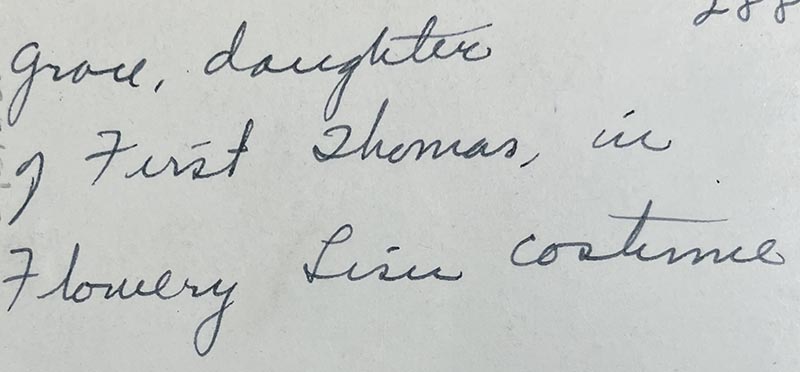 288
Grace, daughter
of First Thomas, in
Flowery Lisu costume